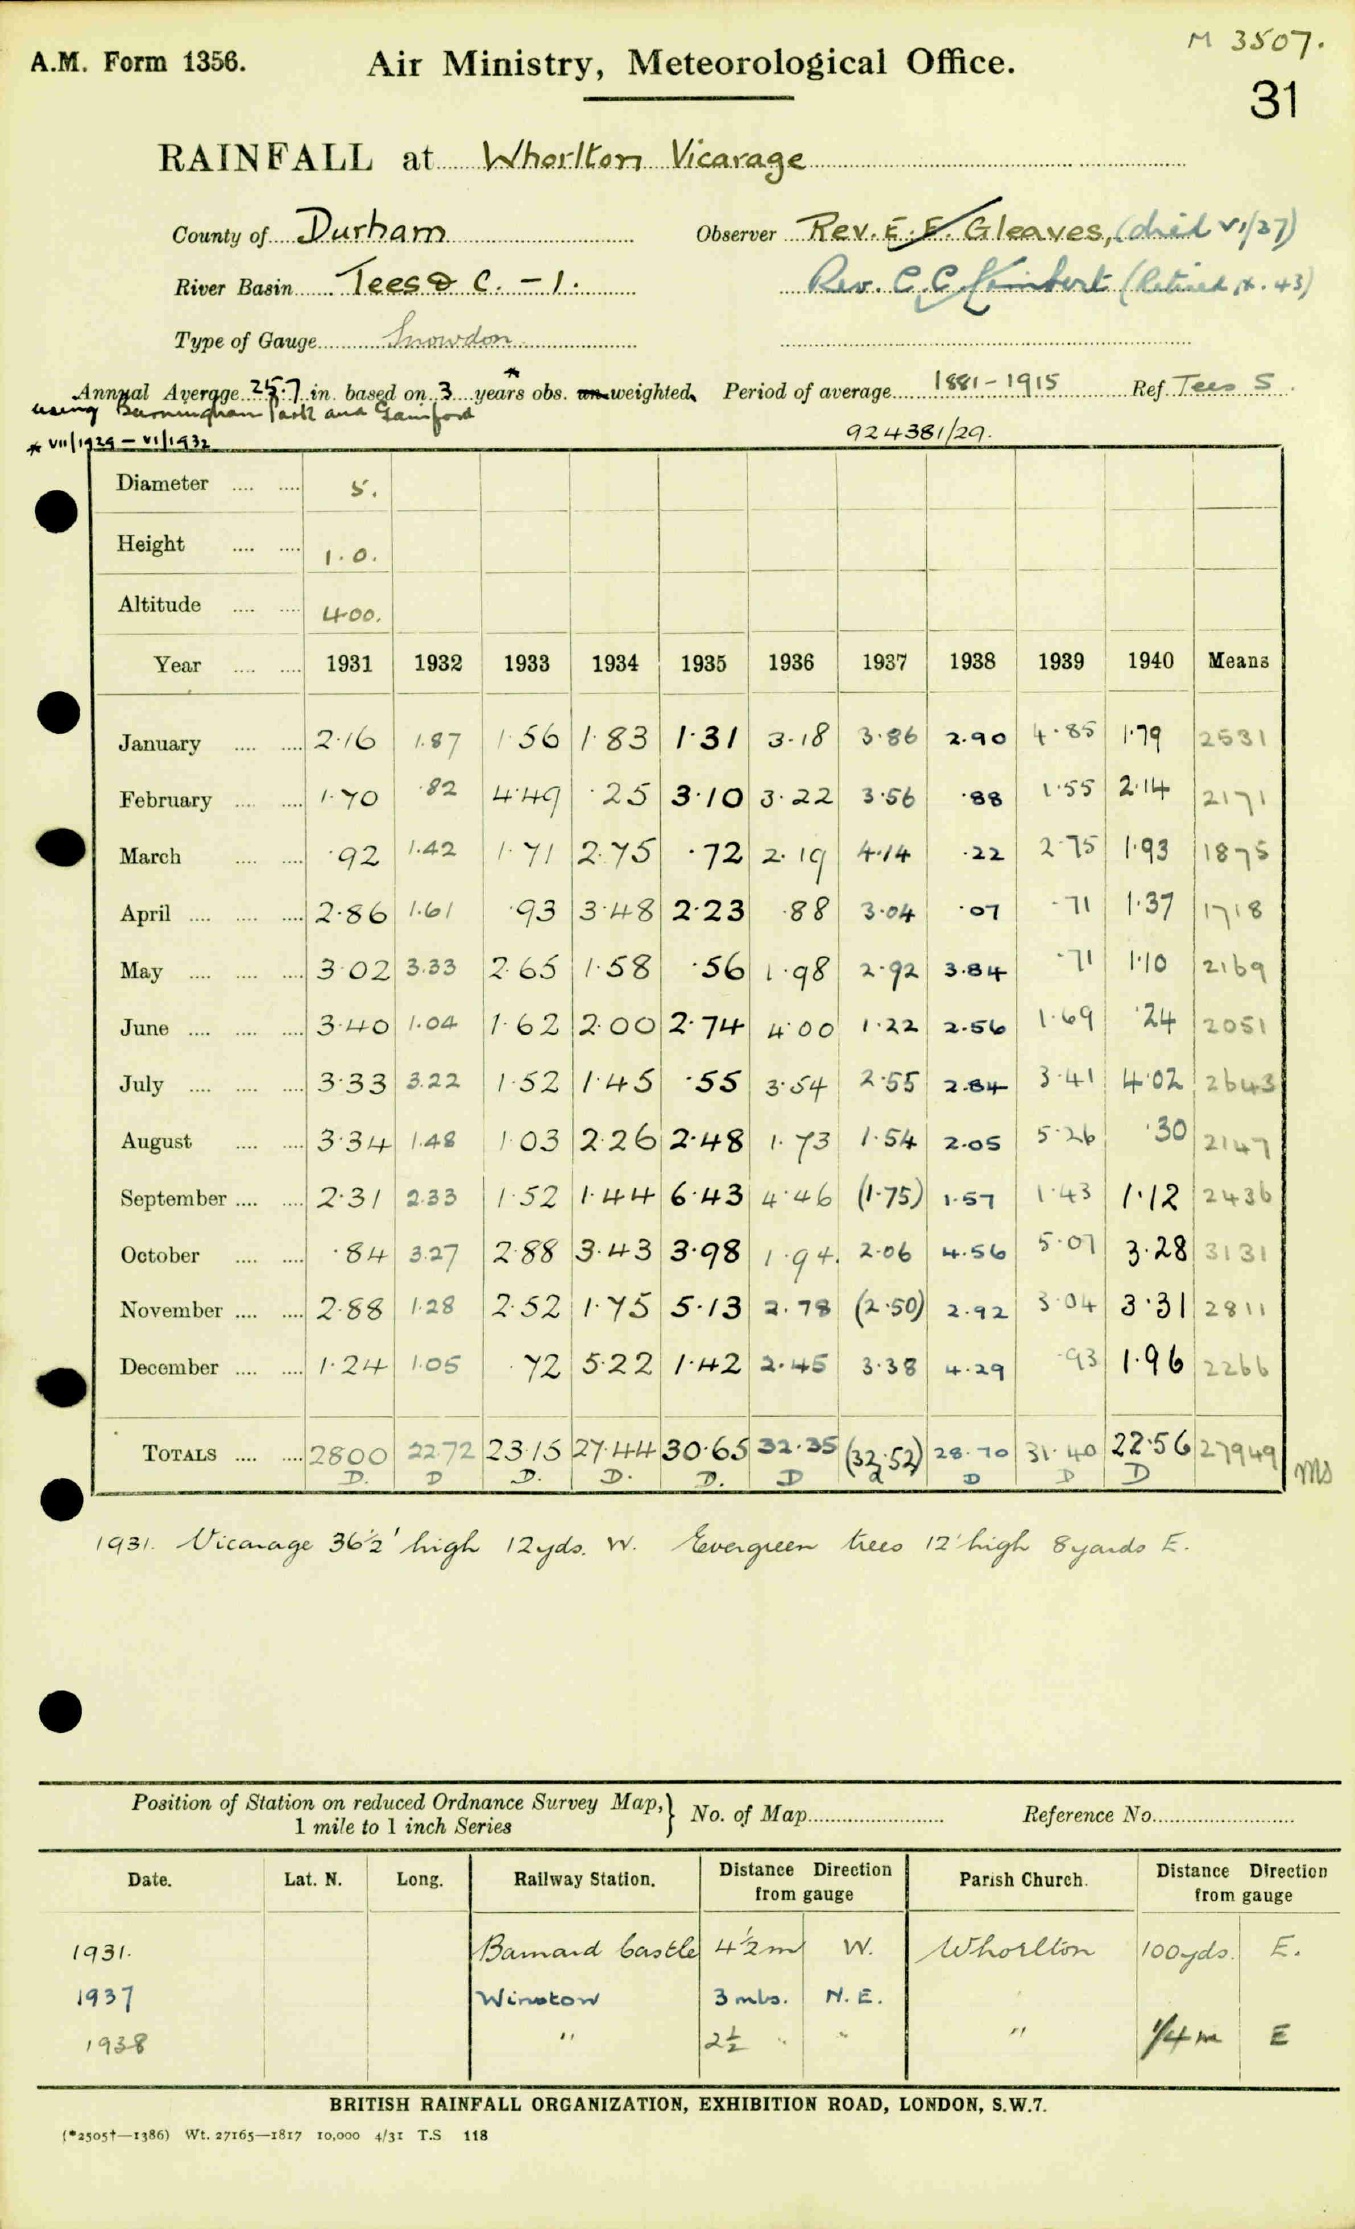 M 3507.
A.M. Form 1356. Air Ministry, Meteorological Office.
31
RAINFALL at Whorlton Vicarage
County of Durham Observer Rev. E. E. Gleaves, (died VI/37)
River Basin Tees & C. - 1. Rev. C. C. (Retired 43)
Type of Gauge Snowdon
Annual Average 25.7 in. based on 3 years* obs. un weighted, Period of average 1881-1915 Ref Tees 5.
using Park and Gainford
* VII/1929 - VI/1932 924381/29.
Diameter .... .... 5.
Height .... .... 1.0.
Altitude .... .... 400.
Year .... .... 1931 1932 1933 1934 1935 1936 1937 1938 1939 1940 Means
January .... .... 2.16 1.87 1.56 1.83 1.31 3.18 3.86 2.90 4.85 1.79 2531
February .... .... 1.70 .82 4.49 .25 3.10 3.22 3.56 .88 1.55 2.14 2171
March .... .... .92 1.42 1.71 2.75 .72 2.19 4.14 .22 2.75 1.93 1875
April .... .... .... 2.86 1.61 .93 3.48 2.23 .88 3.04 .07 .71 1.37 1718
May .... .... .... 3.02 3.33 2.65 1.58 .56 1.98 2.92 3.84 .71 1.10 2169
June .... .... .... 3.40 1.04 1.62 2.00 2.74 4.00 1.22 2.56 1.69 .24 2051
July .... .... .... 3.33 3.22 1.52 1.45 .55 3.54 2.55 2.84 3.41 4.02 2643
August .... .... 3.34 1.48 1.03 2.26 2.48 1.73 1.54 2.05 5.26 .30 2147
September .... .... 2.31 2.33 1.52 1.44 6.43 4.46 (1.75) 1.57 1.43 1.12 2436
October .... .... .84 3.27 2.88 3.43 3.98 1.94. 2.06 4.56 5.07 3.28 3131
November .... .... 2.88 1.28 2.52 1.75 5.13 2.78 (2.50) 2.92 3.04 3.31 2811
December .... .... 1.24 1.05 .72 5.22 1.42 2.45 3.38 4.29 .93 1.96 2266
TOTALS .... .... 2800 2272 23.15 27.44 30.65 32.35 (32.52) 28.70 31.40 22.56 27949
D. D D. D. D. D d D D D Ms
1931. Vicarage 36½' high 12yds. W. Evergreen trees 12' high 8 yards E.
Position of Station on reduced Ordnance Survey Map,} No. of Map Reference No.
1 mile to 1 inch Series
Date. Lat. N. Long. Railway Station. Distance Direction from gauge Parish Church. Distance Direction from gauge
1931. Barnard Castle 4½ m W. Whorlton 100yds. E.
1937 Winston 3 mls. N.E.
1938 " 2½ " " " 1/4 m E
BRITISH RAINFALL ORGANIZATION, EXHIBITION ROAD, LONDON, S.W.7.
(*2505†—1386) Wt. 27165—1817 10,000 4/31 T.S 118